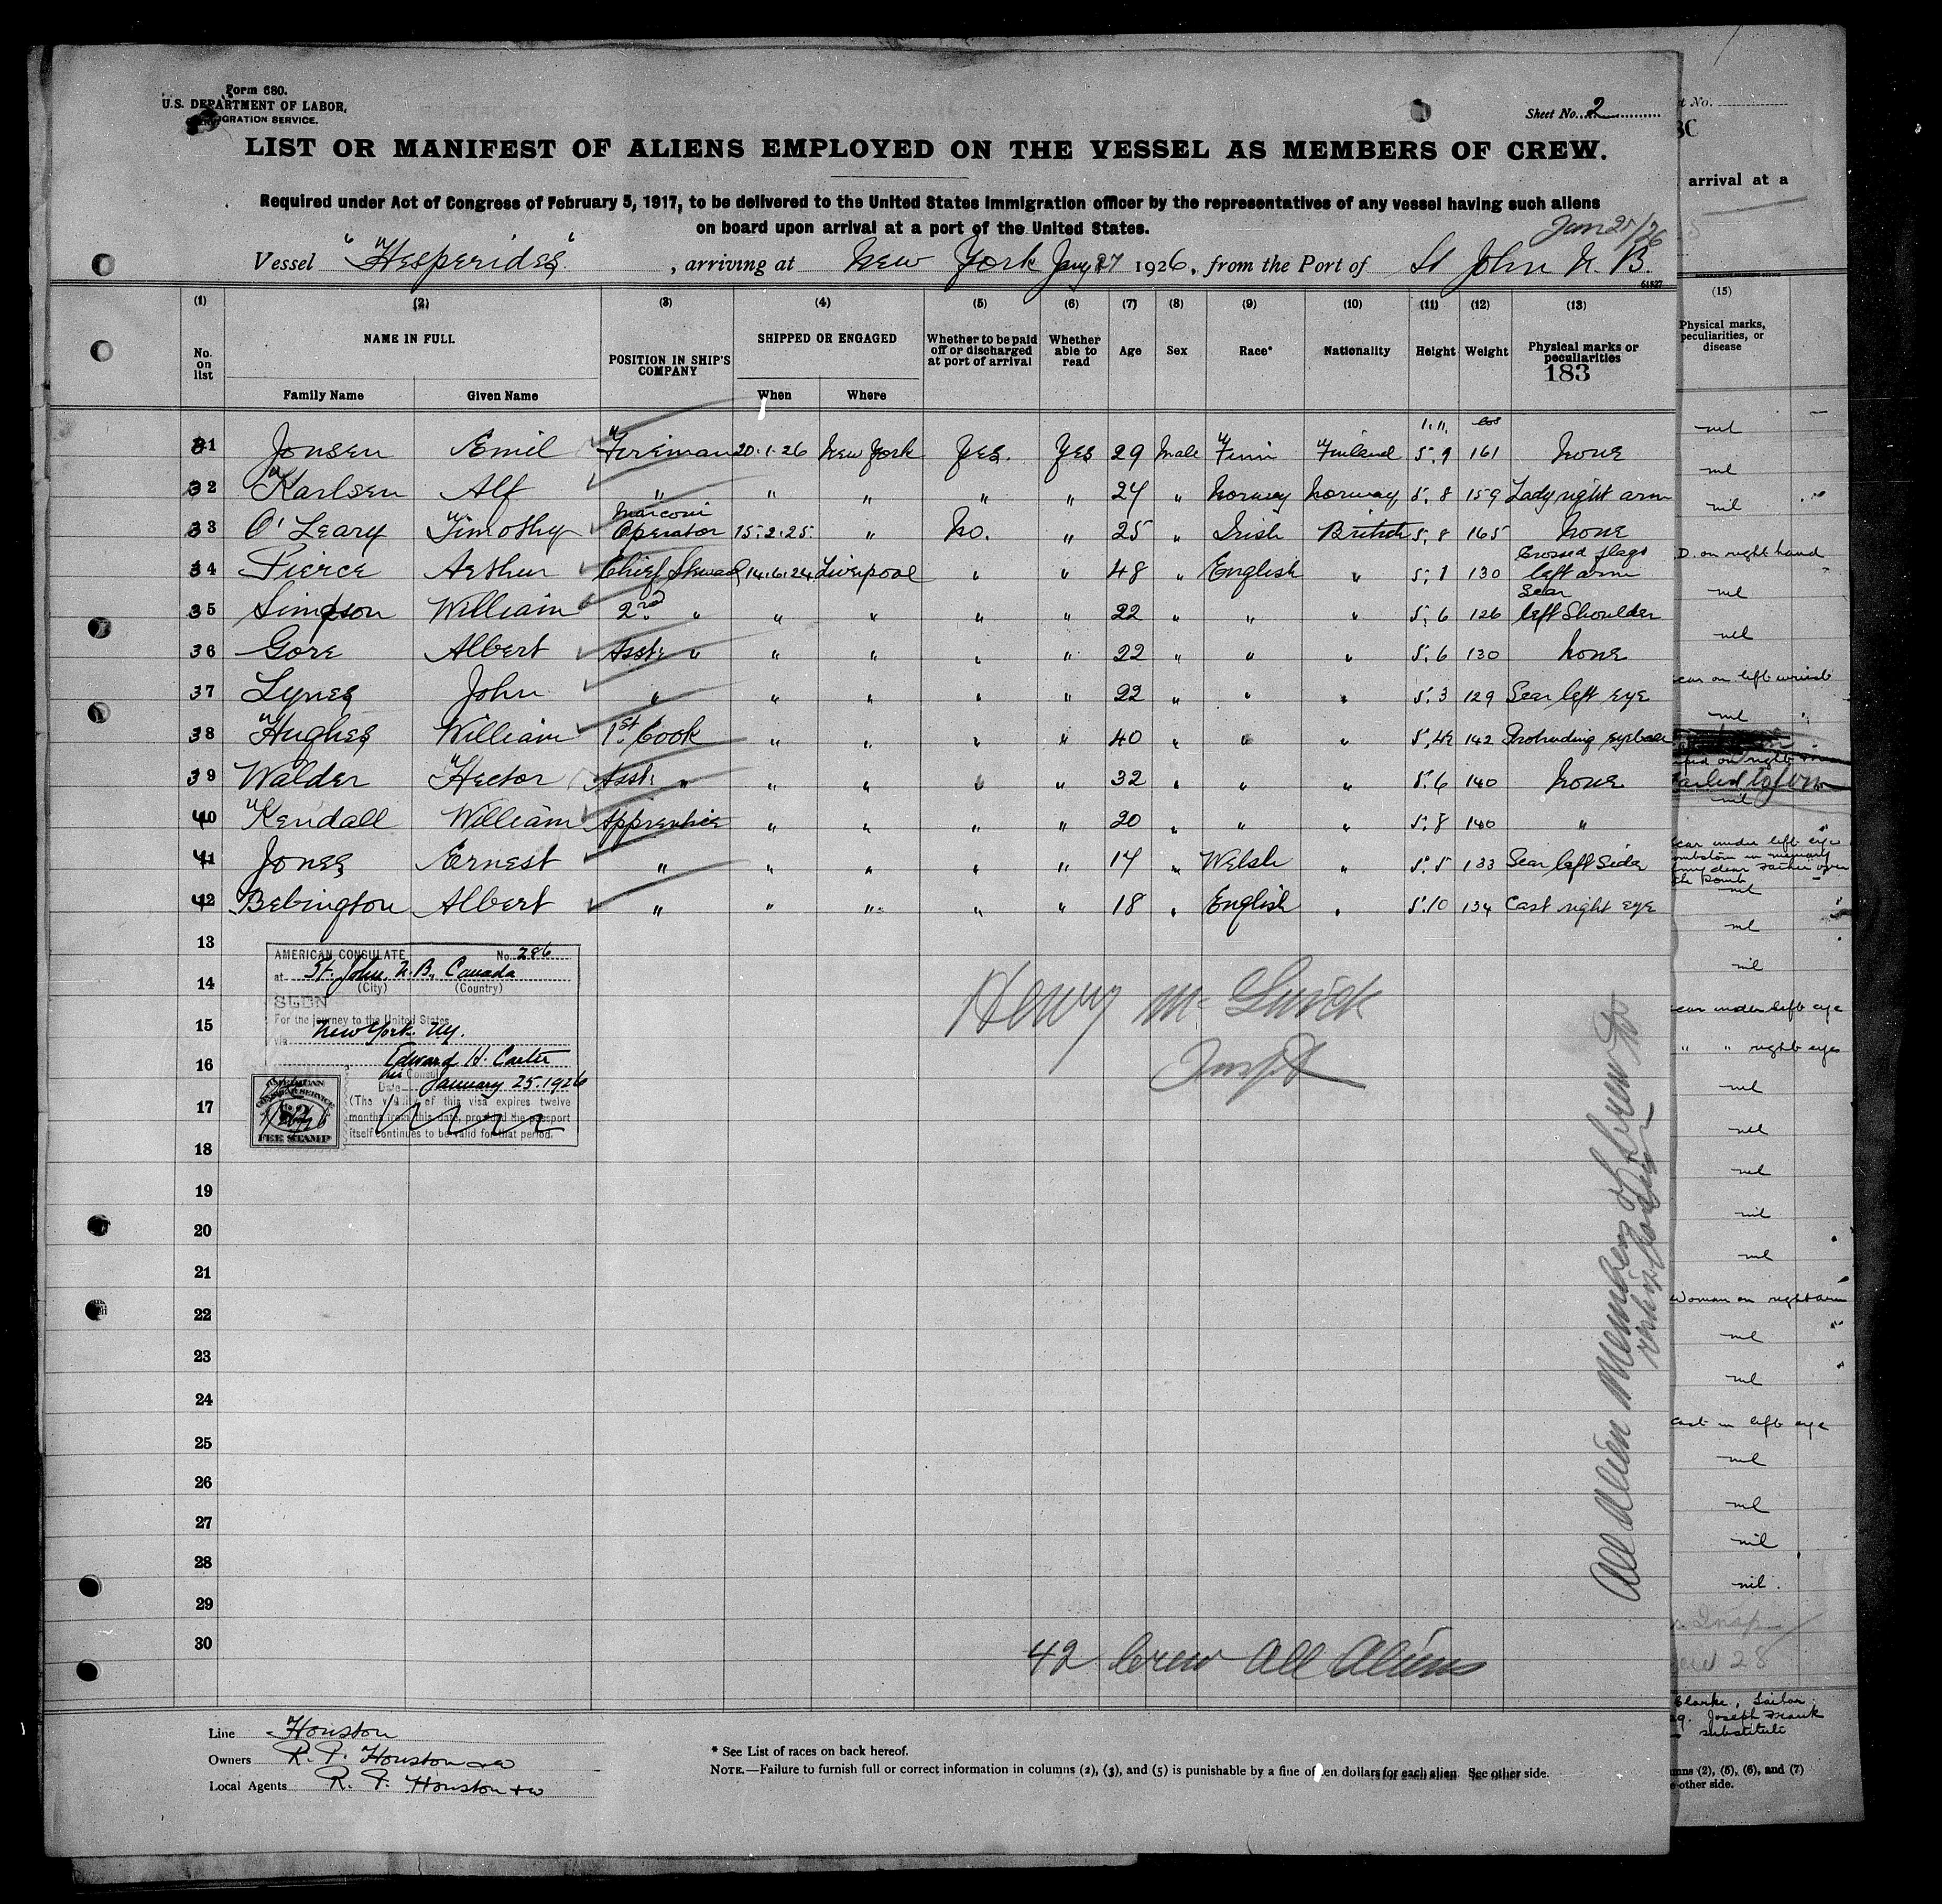 Form 680.
U.S. DEPARTMENT OF LABOR,
IMMIGRATION SERVICE.
Sheet No. 2
LIST OR MANIFEST OF ALIENS EMPLOYED ON THE VESSEL AS MEMBERS OF CREW.
Required under Act of Congress of February 5, 1917, to be delivered to the United States immigration officer by the representatives of any vessel having such aliens
on board upon arrival at a port of the United States.
Jan 25/26
Vessel "Hesperides", arriving at New York Jany 27 1926, from the Port of St John N. B.
61827
(1) (2) (3) (4) (5) (6) (7) (8) (9) (10) (11) (12) (13)
No. on list
NAME IN FULL
Family Name Given Name
POSITION IN SHIP'S COMPANY
SHIPPED OR ENGAGED
When Where
Whether to be paid off or discharged at port of arrival
Whether able to read
Age
Sex
Race*
Nationality
Height
Weight
Physical marks or peculiarities
183
31 Jonsen Emil Fireman 20.1.26 New York Yes. Yes 29 Male Finn Finland 5.9 161 None
32 Karlsen Alf " " " " " 24 " Norway Norway 5.8 159 Lady right arm
33 O'Leary Timothy Marconi Operator 15.2.25. " No. " 25 " Irish British 5.8 165 None
34 Pierce Arthur Chief Steward 14.6.24 Liverpool " " 48 " English " 5.1 130 Crossed flags left arm
35 Simpson William 2nd " " " " " 22 " " " 5.6 126 Scar left Shoulder
36 Gore Albert Asst. " " " " " 22 " " " 5.6 130 None
37 Lynes John " " " " " 22 " " " 5.3 129 Scar left eye
38 Hughes William 1st Cook " " " " 40 " " " 142 Protruding
39 Walder Hector Asst. " " " " " 32 " " " 5.6 140 None
40 Kendall William Apprentice " " " " 20 " " " 5.8 140 "
41 Jones Ernest " " " " " 17 " Welsh " 5.5 133 Scar left side
42 Bebington Albert " " " " " 18 " English " 5.10 134 Cast right eye
13
14
15
16
17
18
19
20
21
22
23
24
25
26
27
28
29
30
AMERICAN CONSULATE No. 286
at St. John N.B., Canada
(City) (Country)
SEEN
For the journey to the United States
via New York N.Y.
Edward H. Carter
Vice Consul
Date January 25. 1926
(The validity of this visa expires twelve
months from this date, provided the passport
itself continues to be valid for that period.
AMERICAN
CONSULAR SERVICE
FEE STAMP
Henry
All Alien Members of Crew
42 Crew All Aliens
Line Houston
Owners R. P. Houston & Co
Local Agents R. P. Houston & Co
* See List of races on back hereof.
NOTE.—Failure to furnish full or correct information in columns (2), (3), and (5) is punishable by a fine of ten dollars for each alien. See other side.
arrival at a
(15)
Physical marks, peculiarities, or disease
nil
nil
nil
D. on right hand
nil
nil
nil
nil
nil
nil
right eye
nil
nil
nil
nil
nil
Woman on right arm
nil
nil
cast in left eye
nil
nil
nil
nil
Joseph Frank
substitute
(2), (5), (6), and (7)
other side.